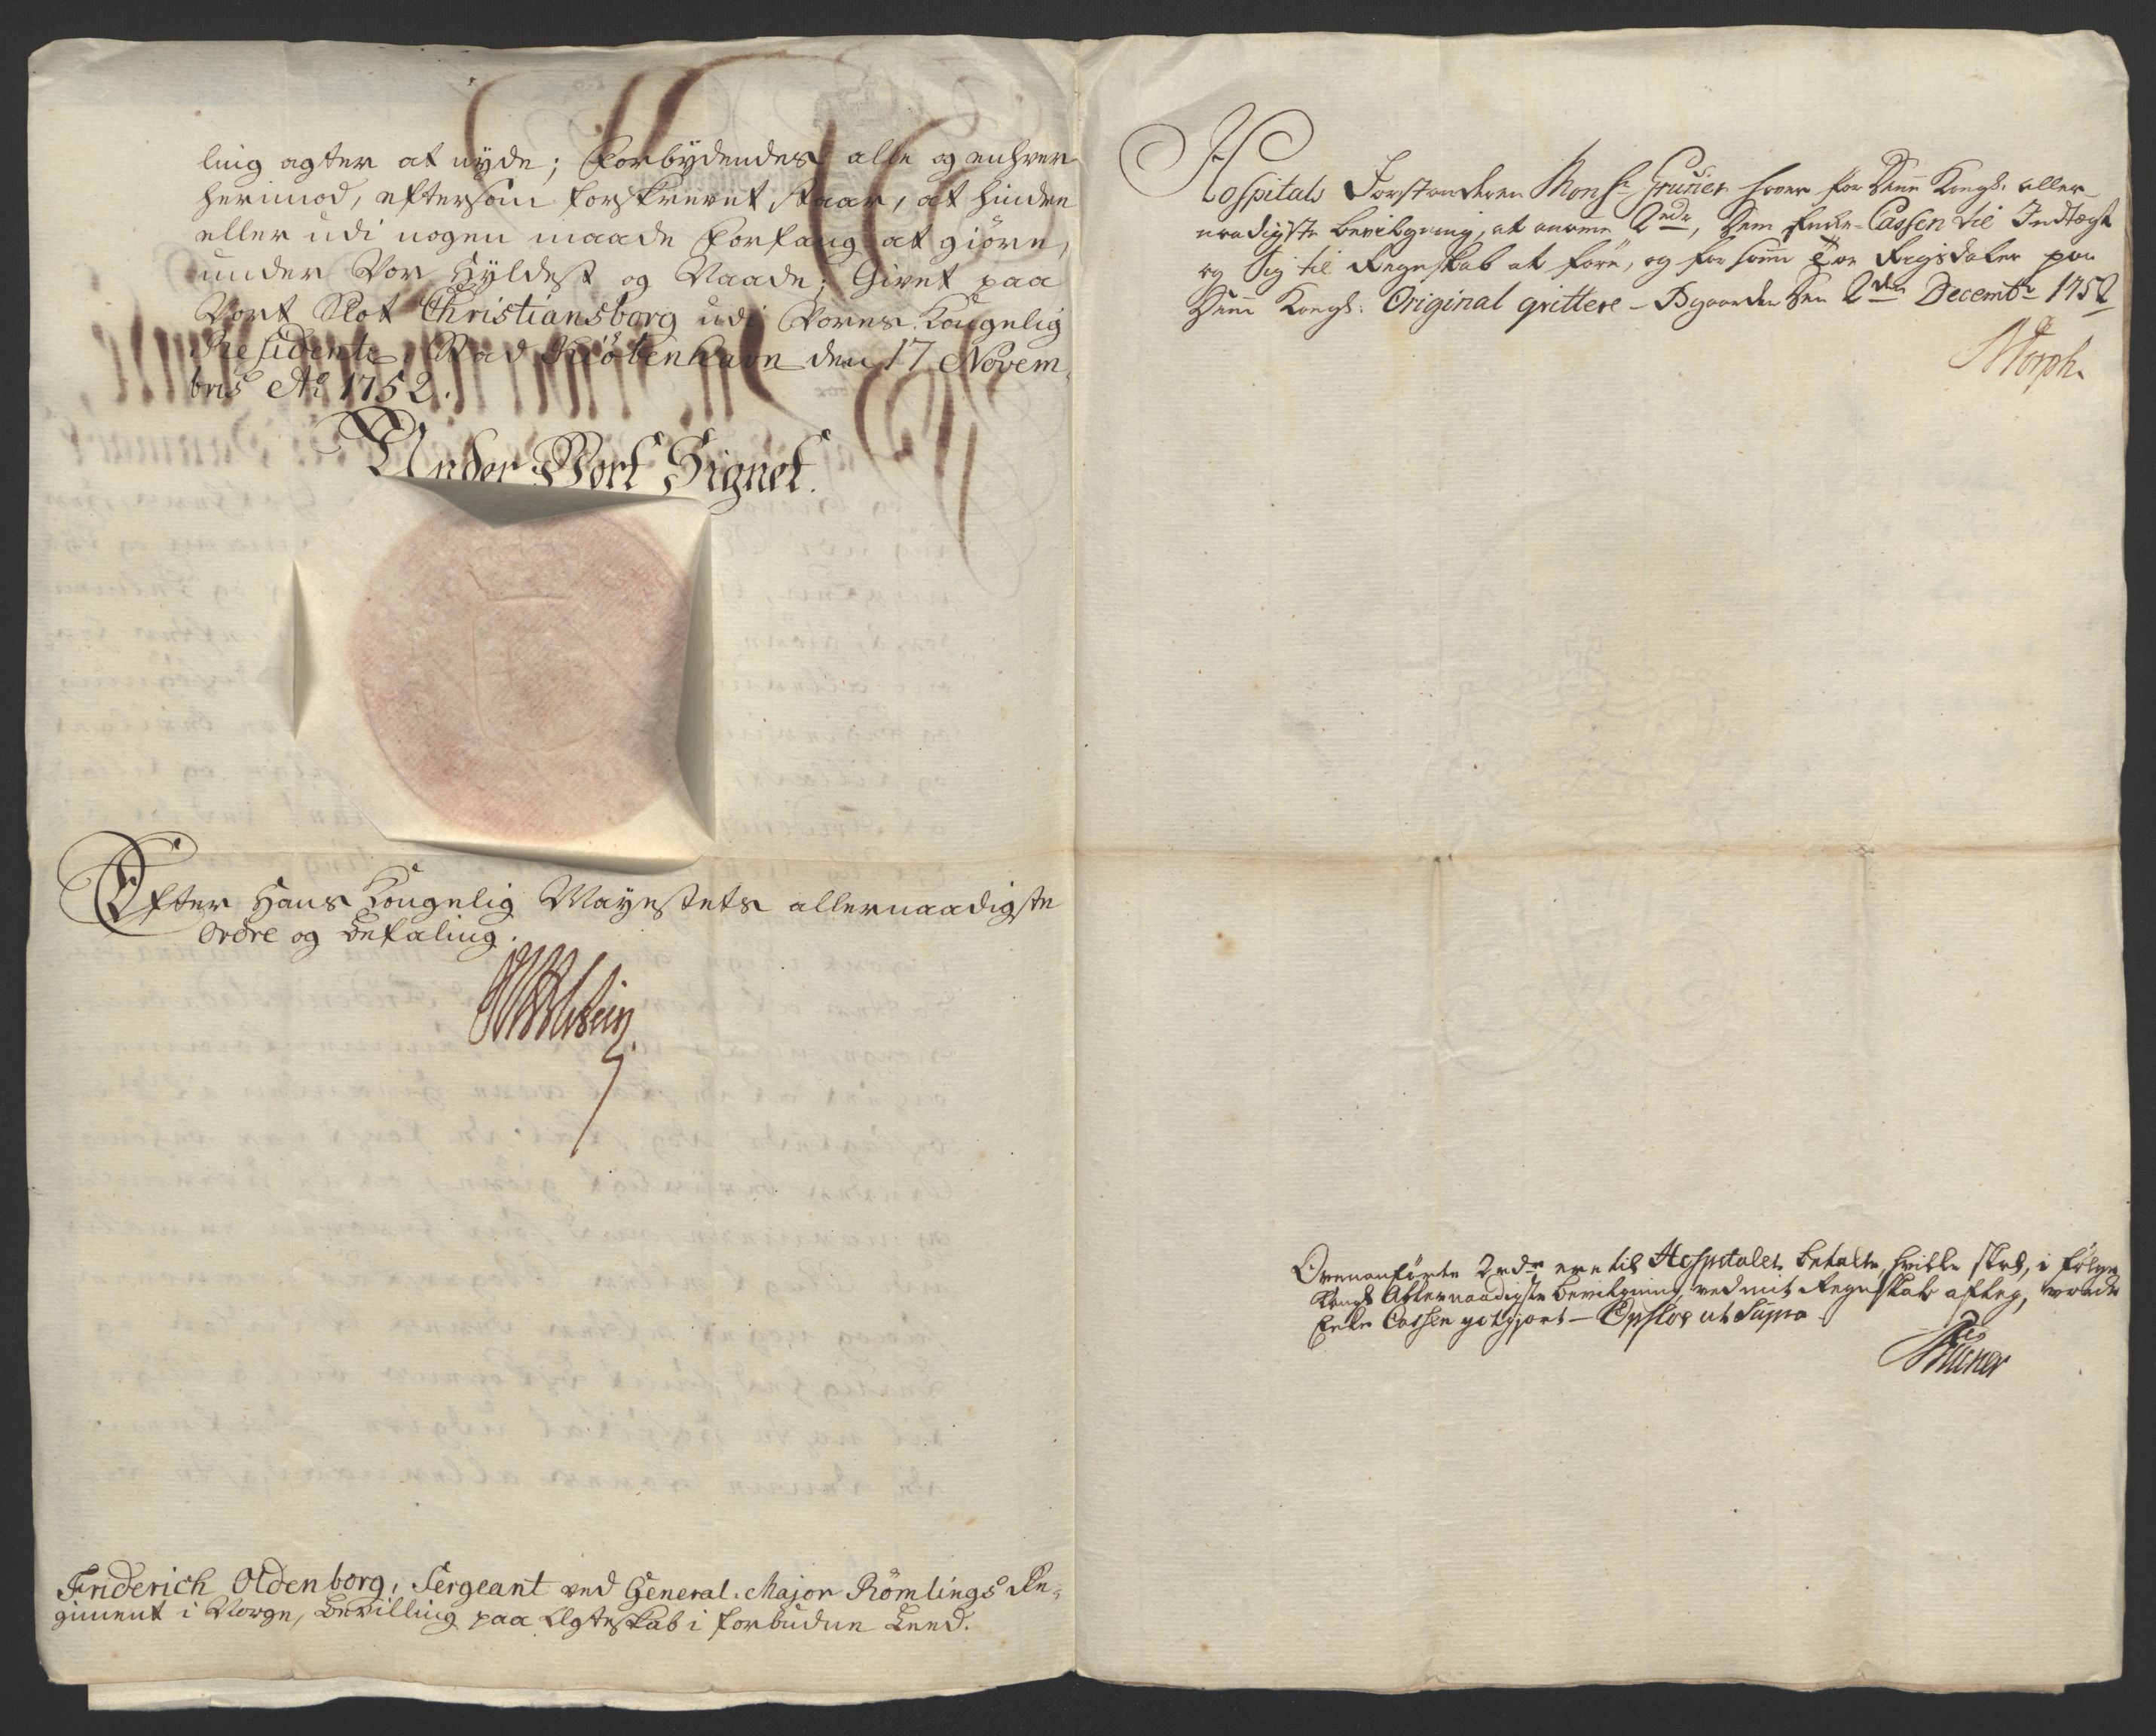 ling agter at nyde; Forbydendes alle og enhver
herimod, eftersom forskrevet staar, at hindre
eller udi nogen maade Forfang at giöre,
under Vor Hyldest og Naade; Givet paa
Vort Slot Christiansborg udi Vores Kongelig
Residentz-Stad Kiöbenhavn den 17 Novem-
bris Ao 1752.
Under Vort Signet.
Efter Hans Kongelig Mayestets allernaadigste
Ordre og Befaling.
Friderich Oldenborg, Sergeant ved General-Major Römlings Re-
giment i Norge, Bevilling paa Ægteskab i forbuden Leed.
Hospitals Forstanderen Monsr Gruner for denne Kongl. aller-
naadigste Bevilgning, at 2 rdr, Cassen til Indtægt
og Sig til Regnskab at före, og for samme Toe Rigsdaler paa
Denne Kongl: Original qvittere - den 2den Decembr 1752
Storph.
Ovenanförte 2 rdr ere til Hospitalet betalte, hvilke skal, i fölge
Kongl Allernaadigste Bevilgning, ved mit Regnskabs aflæg, vorde
Cassen godgjort - ut Supra
Gruner